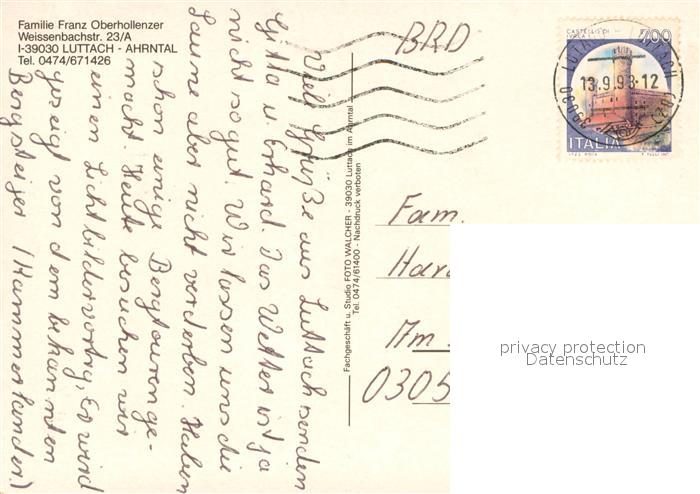 Familie Franz Oberhollenzer
Weissenbachstr. 23/A
I-39030 LUTTACH - AHRNTAL
Tel. 0474/671426
BRD
CASTELLO DI
700
13.9.93-12
39030
ITALIA
Viele Grüße aus Luttach senden
Gitta u. Erhard. Das Wetter ist ja
nicht so gut. Wir lassen uns die
Laune aber nicht verderben. Haben
schon einige Bergtouren ge-
macht. Heute besuchen wir
einen Lichtbildervortrg. Es wird
gezeigt von dem bekannten
Bergsteiger (Hammerlander.)
Fachgeschäft u. Studio FOTO WALCHER - 39030 Luttach im Ahrntal
Tel. 0474/61400 - Nachdruck verboten
Fam.
Har
Am
0305
privacy protection
Datenschutz